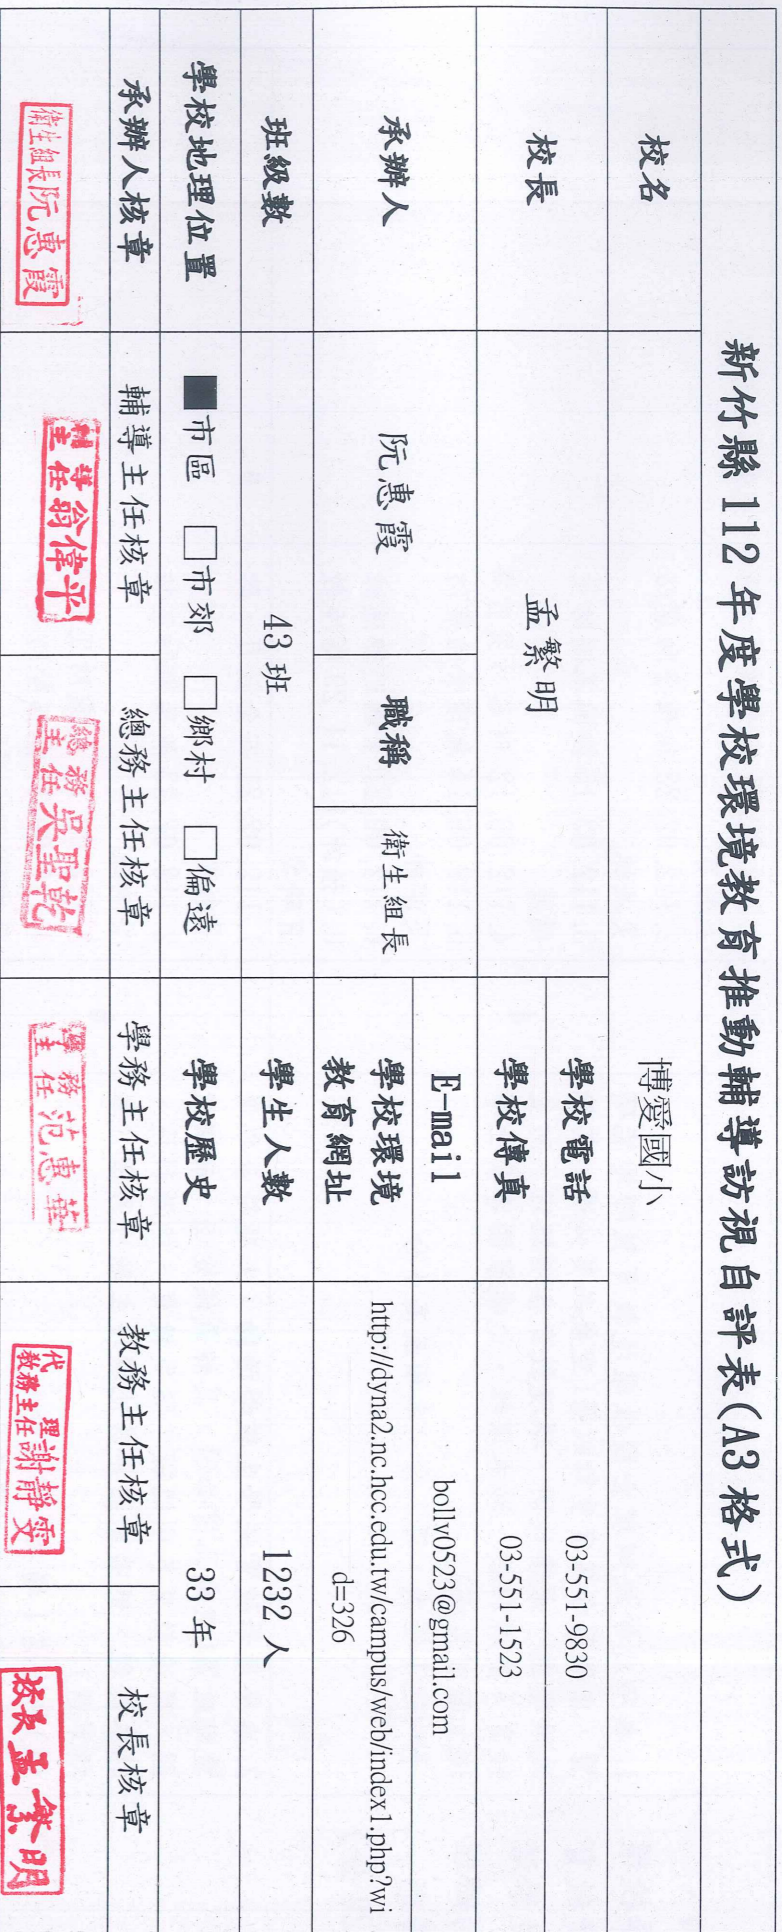 新竹縣 112 年度學校環境教育推動輔導訪視自評表(A3 格式)
校名 博愛國小
校長 孟繁明 學校電話 03-551-9830
學校傳真 03-551-1523
承辦人 阮惠霞 職稱 衛生組長 E-mail bollv0523@gmail.com
學校環境
教育網址
http://dyna2.nc.hcc.edu.tw/campus/web/index1.php?wi
d=326
班級數 43 班 學生人數 1232 人
學校地理位置 ■市區 □市郊 □鄉村 □偏遠 學校歷史 33 年
承辦人核章 輔導主任核章 總務主任核章 學務主任核章 教務主任核章 校長核章
衛生組長阮惠霞
輔導主任翁偉平
總務主任吳聖乾
學務主任范惠華
代理教務主任謝靜雯
校長孟繁明